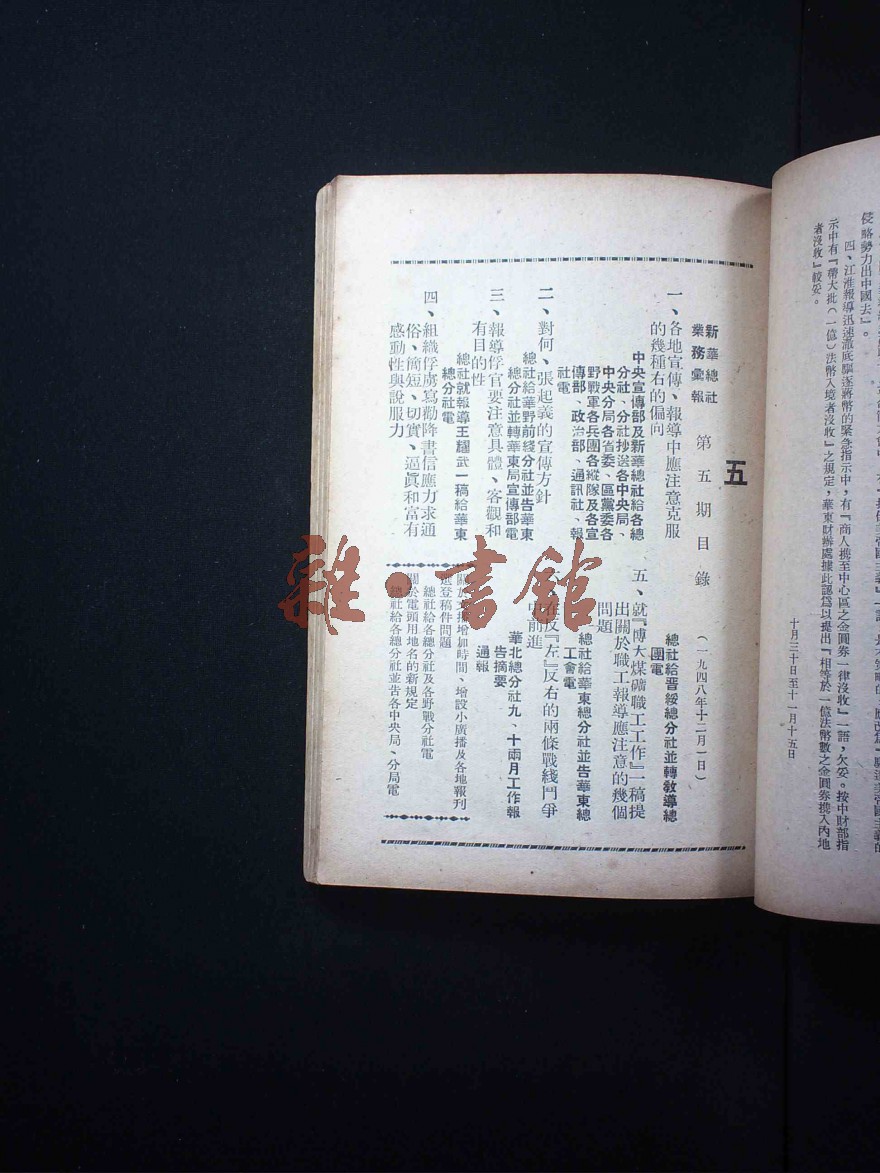 侵略勢力出中國去』。
四、江淮報導迅速澈底驅逐蔣幣的緊急指示中,有『商人携至中心區之金圓券一律沒收』一語,欠妥。按中財部指
示中有『帶大批(一億)法幣入境者沒收』之規定,華東財辦處據此認爲以提出『相等於一億法幣數之金圓券携入內地
者沒收』較妥。
十月三十日至十一月十五日
五
新華總社
業務彙報
第五期目錄
(一九四八年十二月一日)
一、各地宣傳、報導中應注意克服
的幾種右的偏向
中央宣傳部及新華總社給各總
分社、分社抄送各中央局、
中央分局各省委、區黨委各
野戰軍各兵團各縱隊及各宣
傳部、政治部、通訊社、報
社電
二、對何、張起義的宣傳方針
總社給華野前綫分社並告華東
總分社並轉華東局宣傳部電
三、報導俘官要注意具體、客觀和
有目的性
總社就報導王耀武一稿給華東
總分社電
四、組織俘虜寫勸降書信應力求通
俗、簡短、切實、逼眞和富有
感動性與說服力
總社給晋綏總分社並轉教導總
團電
五、就『博大煤礦職工工作』一稿提
出關於職工報導應注意的幾個
問題
總社給華東總分社並告華東總
工會電
在反『左』反右的兩條戰綫鬥爭
中前進
華北總分社九、十兩月工作報
告摘要
通報
關於文播增加時間、增設小廣播及各地報刊
選登稿件問題
總社給各總分社及各野戰分社電
關於電頭用地名的新規定
總社給各總分社並告各中央局、分局電
雜·書館